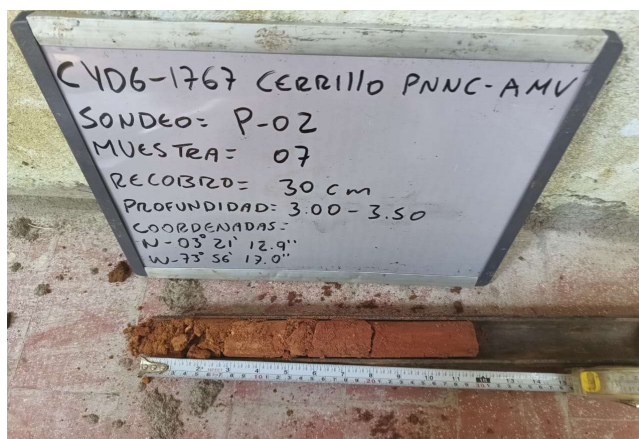 CYDG-1767 CERRILLO PNNC-AMV
SONDEO= P-02
MUESTRA= 07
RECOBRO= 30 cm
PROFUNDIDAD= 3.00-3.50
COORDENADAS=
N-03° 21' 12.9"
W-73° 56' 17.0"